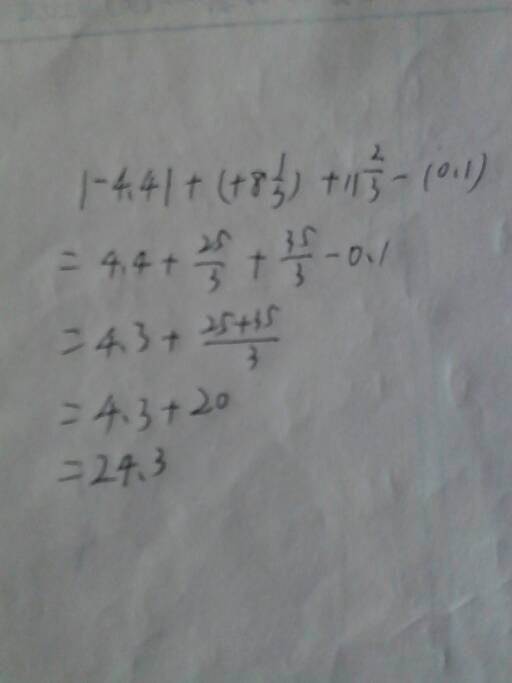 |-4.4| + (+8 1/3) + 11 2/3 - (0.1)
= 4.4 + 25/3 + 35/3 - 0.1
= 4.3 + (25+35)/3
= 4.3 + 20
= 24.3